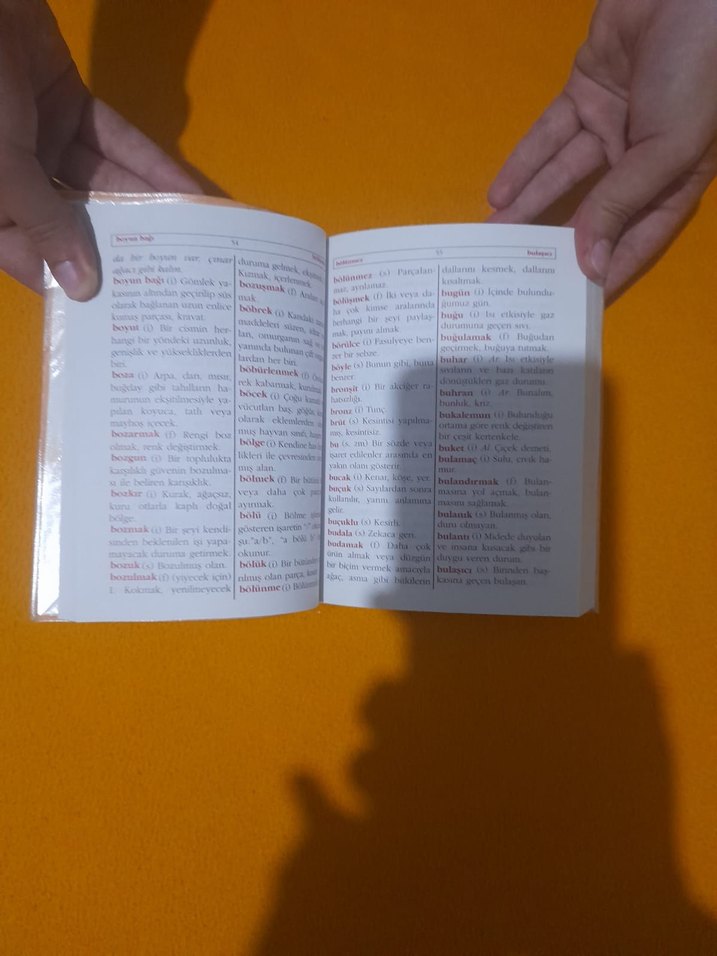 boyun bağı
54
da bir boyun var, çınar
ağacı gibi kalın.
boyun bağı (i) Gömlek ya-
kasının altından geçirilip süs
olarak bağlanan uzun enlice
kumaş parçası, kravat.
boyut (i) Bir cismin her-
hangi bir yöndeki uzunluk,
genişlik ve yüksekliklerden
biri.
boza (i) Arpa, darı, mısır,
buğday gibi tahılların ha-
murunun ekşitilmesiyle ya-
pılan koyuca, tatlı veya
mayhoş içecek.
bozarmak (f) Rengi boz
olmak, renk değiştirmek.
bozgun (i) Bir toplulukta
karşılıklı güvenin bozulma-
sı ile beliren karışıklık.
bozkır (i) Kurak, ağaçsız,
kuru otlarla kaplı doğal
bölge.
bozmak (i) Bir şeyi kendi-
sinden beklenilen işi yapa-
mayacak duruma getirmek.
bozuk (s) Bozulmuş olan.
bozulmak (f) (yiyecek için)
1. Kokmak, yenilmeyecek
duruma gelmek,
Kızmak, içerlenmek.
bozuşmak (f) Araları
mak.
böbrek (i) Kandaki
maddeleri süzen, idrar
lan, omurganın sağ ve
yanında bulunan çift
lardan her biri.
böbürlenmek (f)
rek kabarmak,
böcek (i) Çoğu kanatlı
vücutları baş, göğüs,
olarak eklemlerden
muş hayvan sınıfı,
bölge (i) Kendine has
likleri ile çevresinden
mış alan.
bölmek (f) Bir bütünü
veya daha çok
ayırmak.
bölü (i) Bölme
gösteren işaretin
şu: "a/b", "a bölü b"
okunur.
bölük (i) Bir bütünün
rılmış olan parça,
bölünme (i)
bölünmez
55
bulaşıcı
bölünmez (s) Parçalan-
maz, ayrılamaz.
bölüşmek (f) İki veya da-
ha çok kimse aralarında
herhangi bir şeyi paylaş-
mak, payını almak
börülce (i) Fasulyeye ben-
zer bir sebze.
böyle (s) Bunun gibi, buna
benzer.
bronşit (i) Bir akciğer ra-
hatsızlığı.
bronz (i) Tunç.
brüt (s) Kesintisi yapılma-
mış, kesintisiz.
bu (s, zm) Bir sözde veya
işaret edilenler arasında en
yakın olanı gösterir.
bucak (i) Kenar, köşe, yer.
buçuk (s) Sayılardan sonra
kullanılır, yarım anlamına
gelir.
buçuklu (s) Kesirli.
budala (s) Zekaca geri.
budamak (f) Daha çok
ürün almak veya düzgün
bir biçim vermek amacıyla
ağaç, asma gibi bitkilerin
dallarını kesmek, dallarını
kısaltmak.
bugün (i) İçinde bulundu-
ğumuz gün.
buğu (i) Isı etkisiyle gaz
durumuna geçen sıvı.
buğulamak (f) Buğudan
geçirmek, buğuya tutmak.
buhar (i) Ar. Isı etkisiyle
sıvıların ve bazı katıların
dönüştükleri gaz durumu.
buhran (i) Ar. Bunalım,
bunluk, kriz.
bukalemun (i) Bulunduğu
ortama göre renk değiştiren
bir çeşit kertenkele.
buket (i) Al. Çiçek demeti.
bulamaç (i) Sulu, cıvık ha-
mur.
bulandırmak (f) Bulan-
masına yol açmak, bulan-
masını sağlamak.
bulanık (s) Bulanmış olan,
duru olmayan.
bulantı (i) Midede duyulan
ve insana kusacak gibi bir
duygu veren durum.
bulaşıcı (s) Birinden baş-
kasına geçen bulaşan.